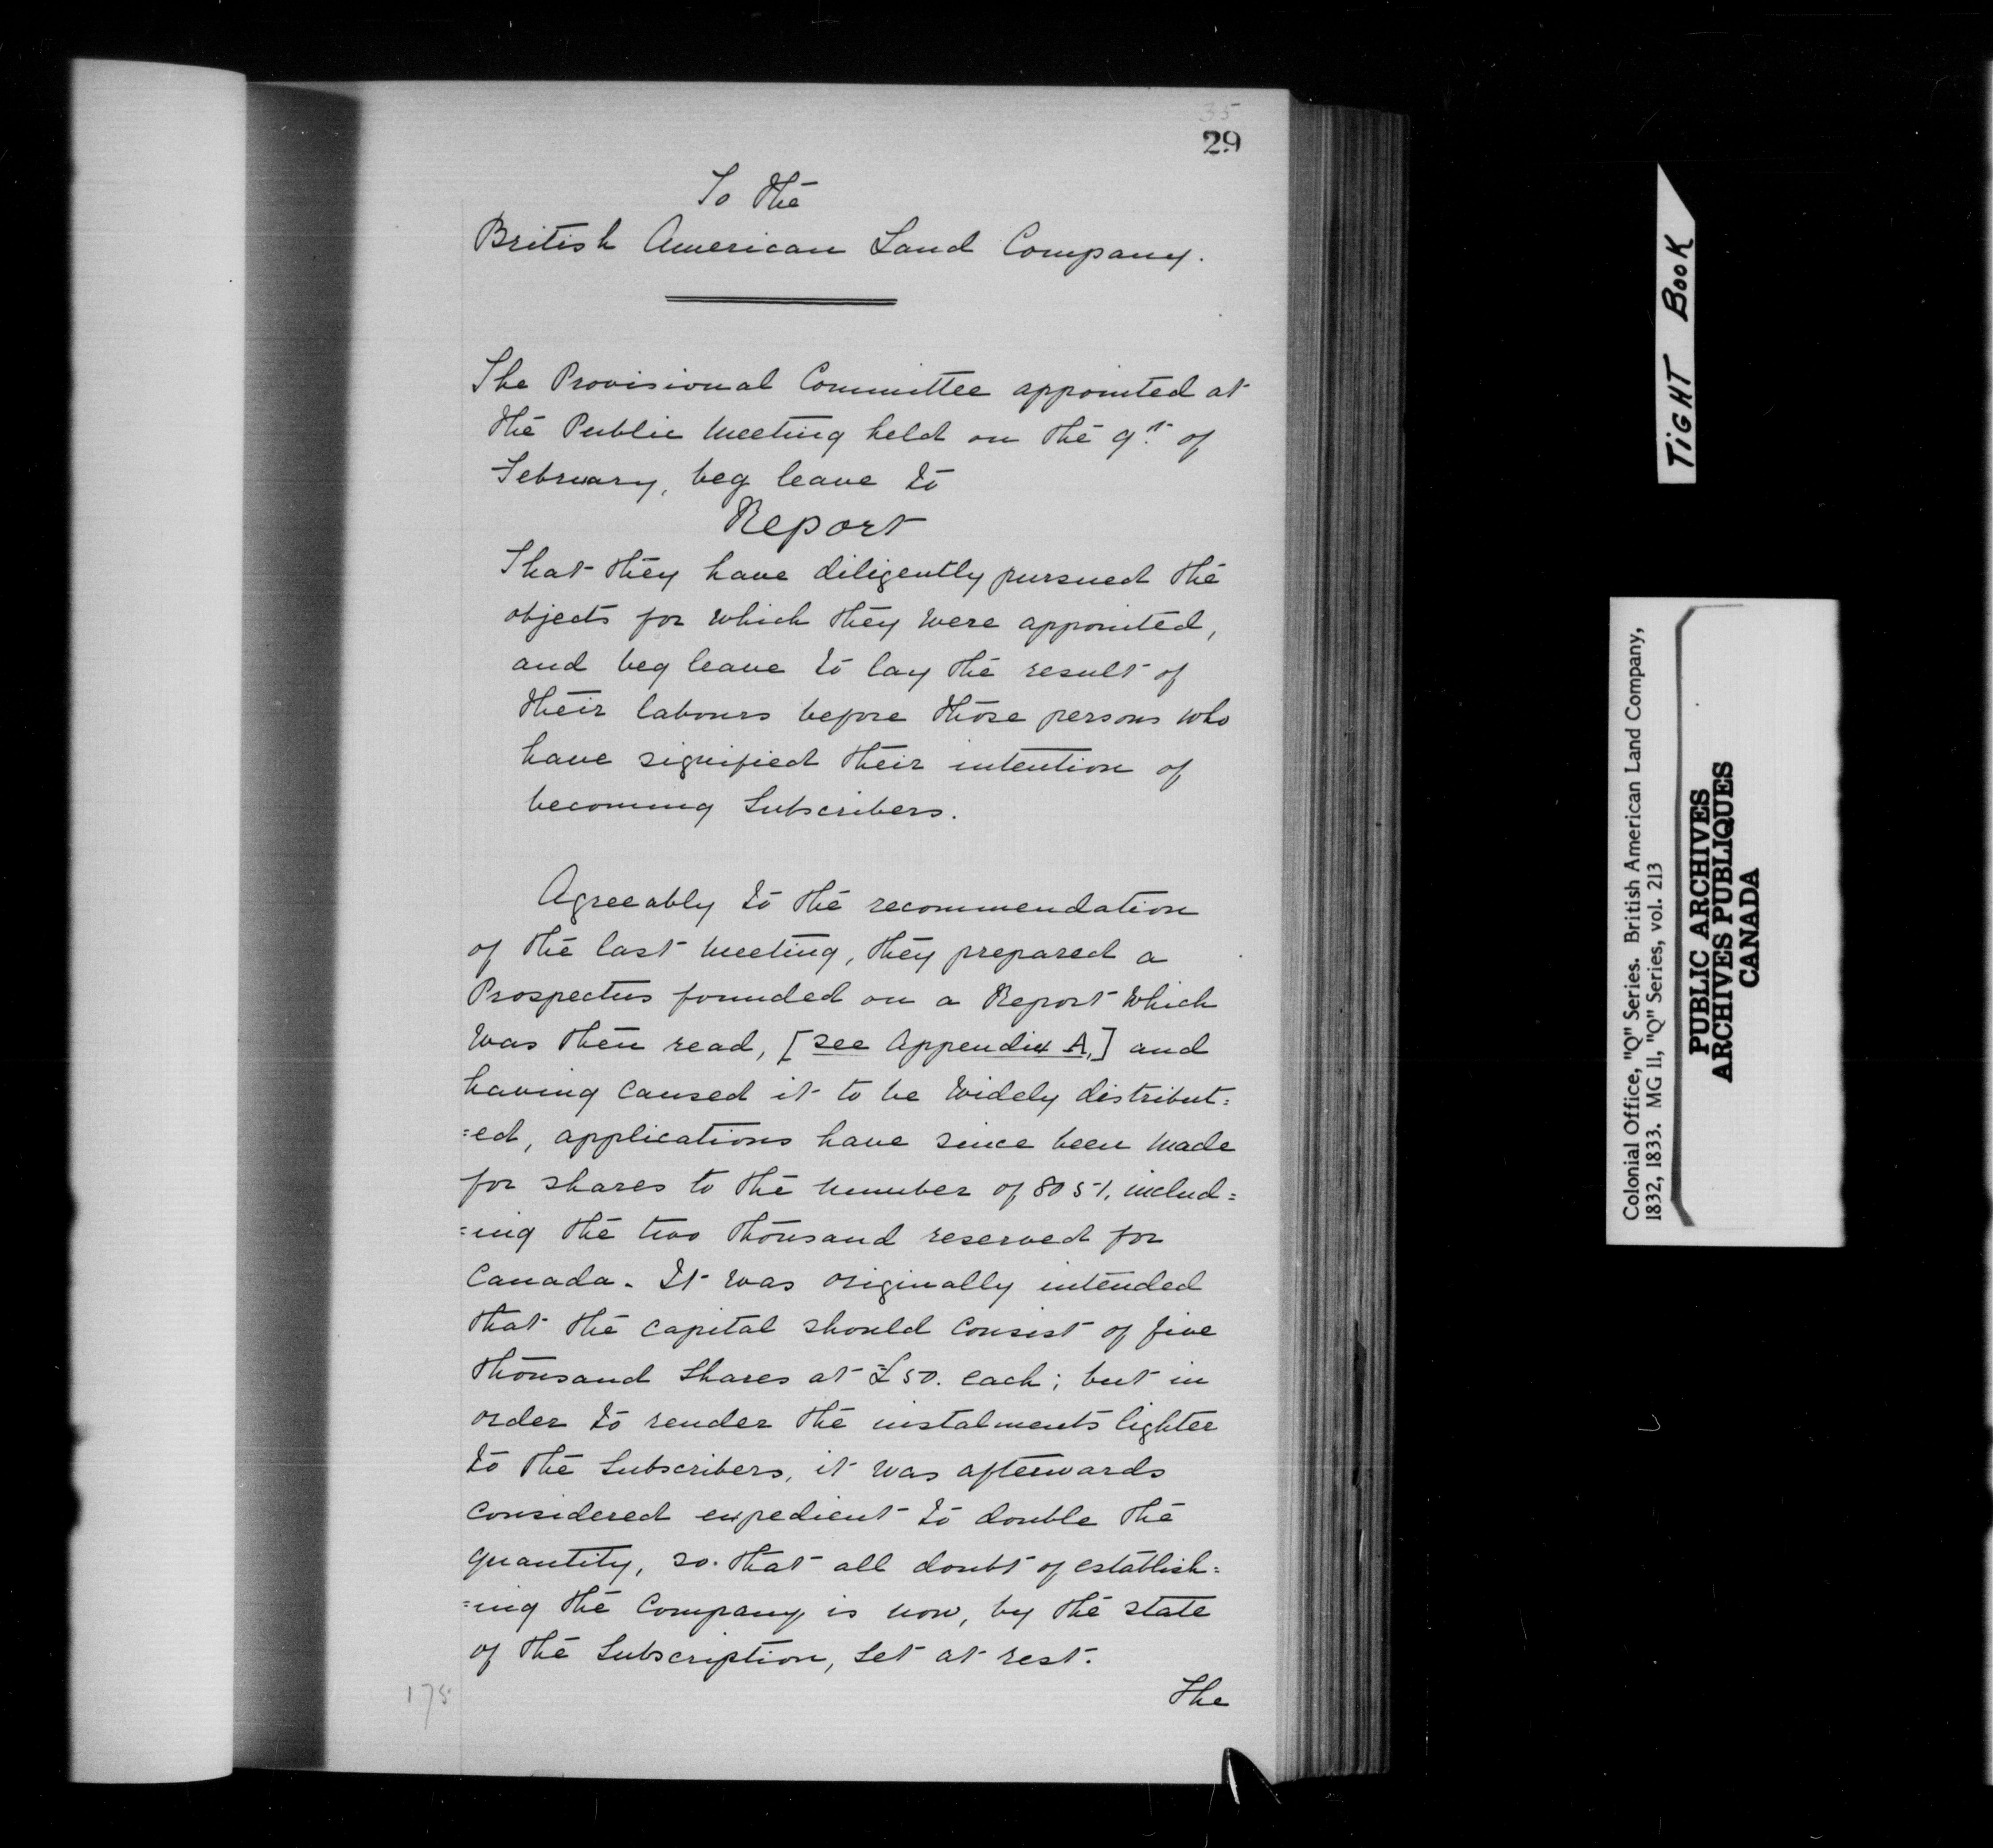 35
29
To the
British American Land Company.
The Provisional Committee appointed at
the Public Meeting held on the 9th of
February, beg leave to
Report
That they have diligently pursued the
objects for which they were appointed,
and beg leave to lay the result of
their labours before those persons who
have signified their intention of
becoming Subscribers.
Agreeably to the recommendation
of the last Meeting, they prepared a
Prospectus founded on a Report which
was then read, [see Appendix A,] and
having caused it to be widely distribut=
=ed, applications have since been made
for shares to the number of 8051, includ=
=ing the two thousand reserved for
Canada. It was originally intended
that the capital should consist of five
thousand Shares at £50. each; but in
order to render the instalments lighter
to the Subscribers, it was afterwards
considered expedient to double the
quantity, so that all doubt of establish=
=ing the Company is now, by the state
of the Subscription, set at rest.
The
175
TIGHT BOOK
Colonial Office, "Q" Series. British American Land Company,
1832, 1833. MG 11, "Q" Series, vol. 213
PUBLIC ARCHIVES
ARCHIVES PUBLIQUES
CANADA